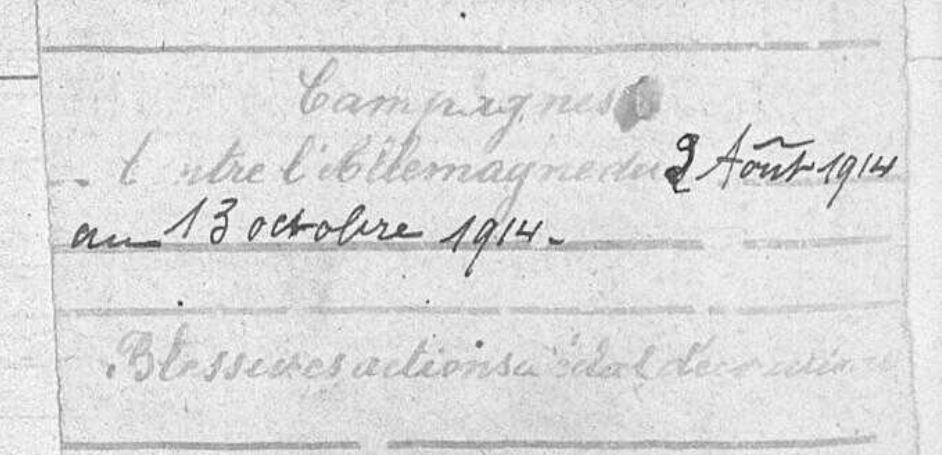 Campagnes
Contre l'Allemagne du 2 Août 1914
au 13 octobre 1914.
Blessures actions d'éclat décorations